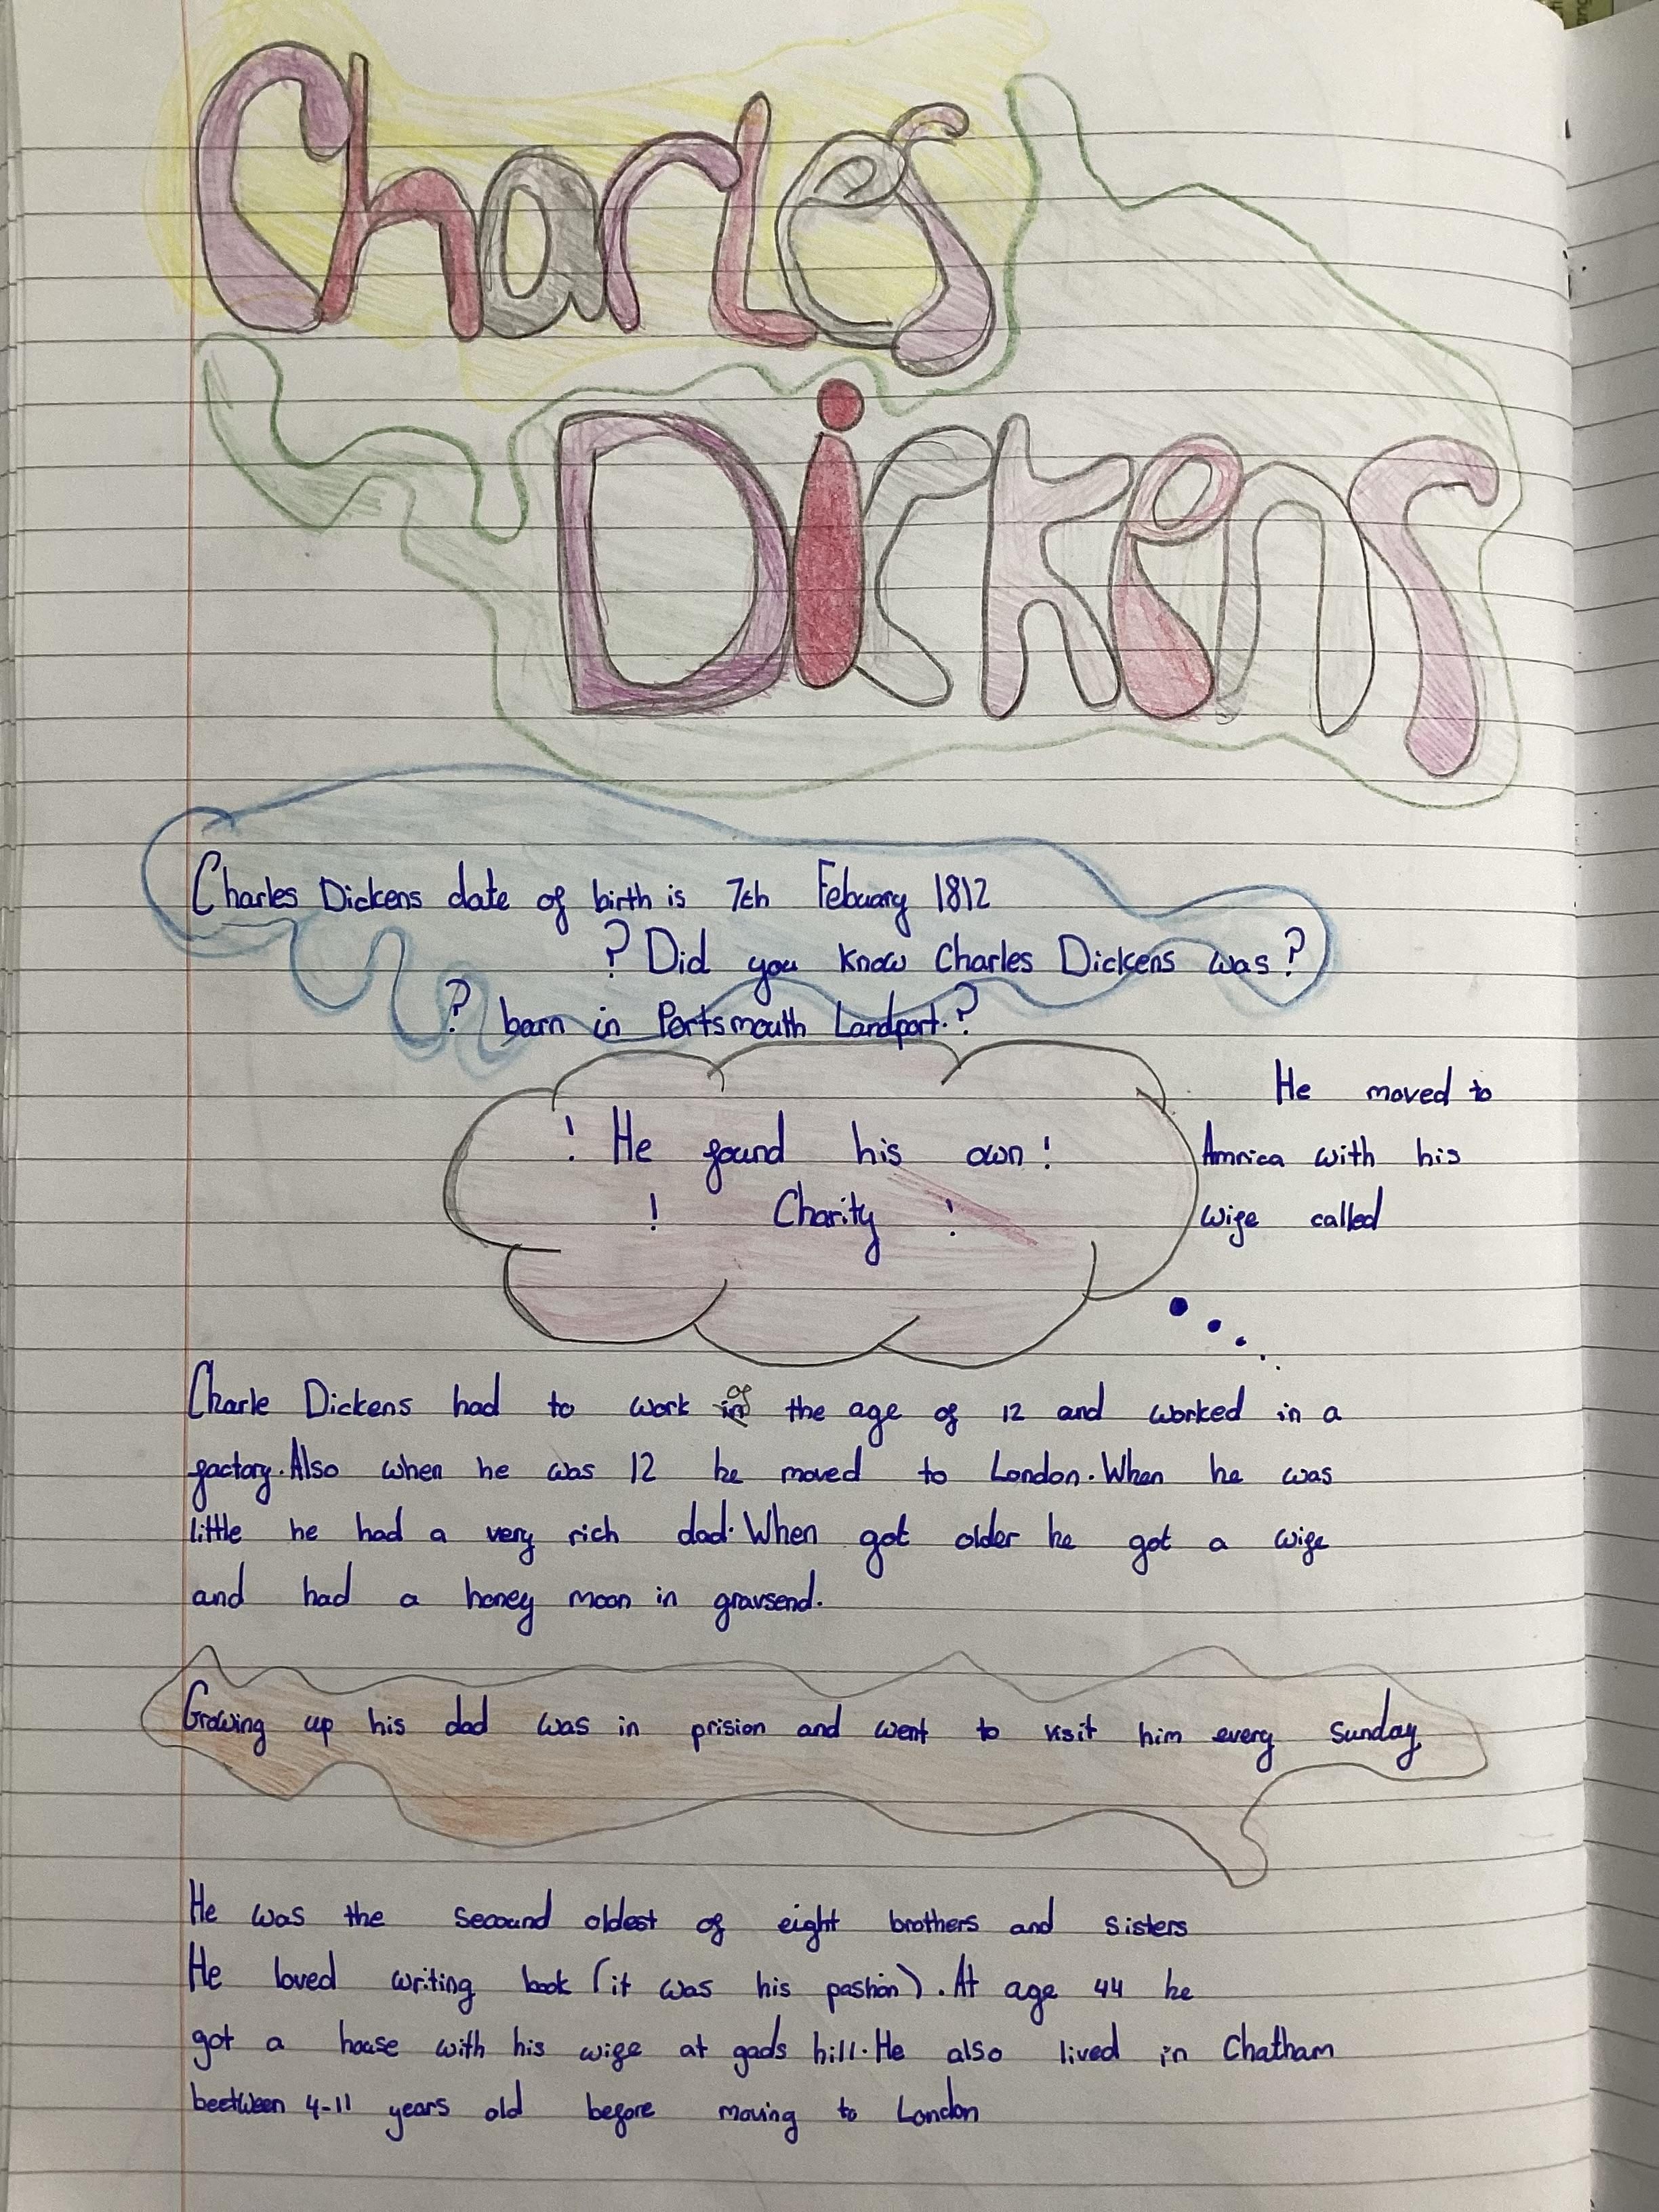 Charles
Dickens
Charles Dickens date of birth is 7th Febuary 1812
? Did you know Charles Dickens was ?
? born in Portsmouth Landport. ?
! He found his own !
! Charity !
He moved to
Amrica with his
wife called
....
Charle Dickens had to work of the age of 12 and worked in a
factory. Also when he was 12 he moved to London. When he was
little he had a very rich dad. When got older he got a wife
and had a honey moon in gravsend.
Growing up his dad was in prision and went to visit him every sunday
He was the secound oldest of eight brothers and sisters
He loved writing book (it was his pashion). At age 44 he
got a house with his wife at gads hill. He also lived in Chatham
beetween 4-11 years old before moving to London